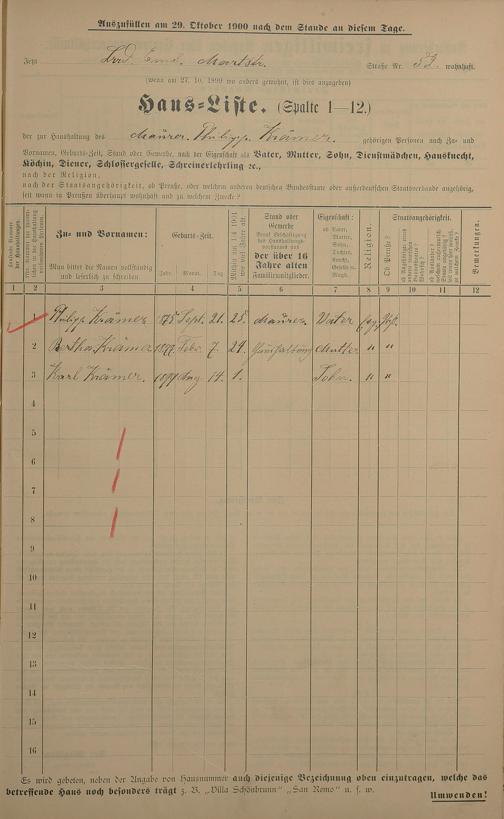 Auszufüllen am 29. Oktober 1900 nach dem Stande an diesem Tage.
Jetzt Straße Nr. 53. wohnhaft.
(wenn am 27. 10. 1899 wo anders gewohnt, ist dies anzugeben)
Haus-Liste. (Spalte 1—12.)
der zur Haushaltung des Maurer Philipp Krämer. gehörigen Personen nach Zu- und
Vornamen, Geburts-Zeit, Stand oder Gewerbe, nach der Eigenschaft als Vater, Mutter, Sohn, Dienstmädchen, Hausknecht,
Köchin, Diener, Schlossergeselle, Schreinerlehrling ꝛc.,
nach der Religion,
nach der Staatsangehörigkeit, ob Preuße, oder welchem anderen deutschen Bundesstaate oder außerdeutschen Staatsverbande angehörig,
seit wann in Preußen überhaupt wohnhaft und zu welchem Zwecke?
Zu- und Vornamen:
Man bittet die Namen vollständig
und leserlich zu schreiben
Geburts-Zeit.
Jahr. Monat. Tag.
Stand oder
Gewerbe
der über 16
Jahre alten
Familienmitglieder.
Eigenschaft:
ob Vater,
Mutter,
Sohn,
Tochter,
Religion.
Ob Preuße?
Staatsangehörigkeit.
Bemerkungen.
1 2 3 4 5 6 7 8 9 10 11 12
1 Philipp Krämer 1875 Sept. 21. 25. Maurer. Vater
2 Bertha Krämer Febr. 7. Haushaltung Mutter " "
3 Karl Krämer. 1899 Aug 14. 1. Sohn. " "
4
5
6
7
8
9
10
11
12
13
14
15
16
Es wird gebeten, neben der Angabe von Hausnummer auch diejenige Bezeichnung oben einzutragen, welche das
betreffende Haus noch besonders trägt z. B. „Villa Schönbrunn" „San Remo" u. s. w.
Umwenden!